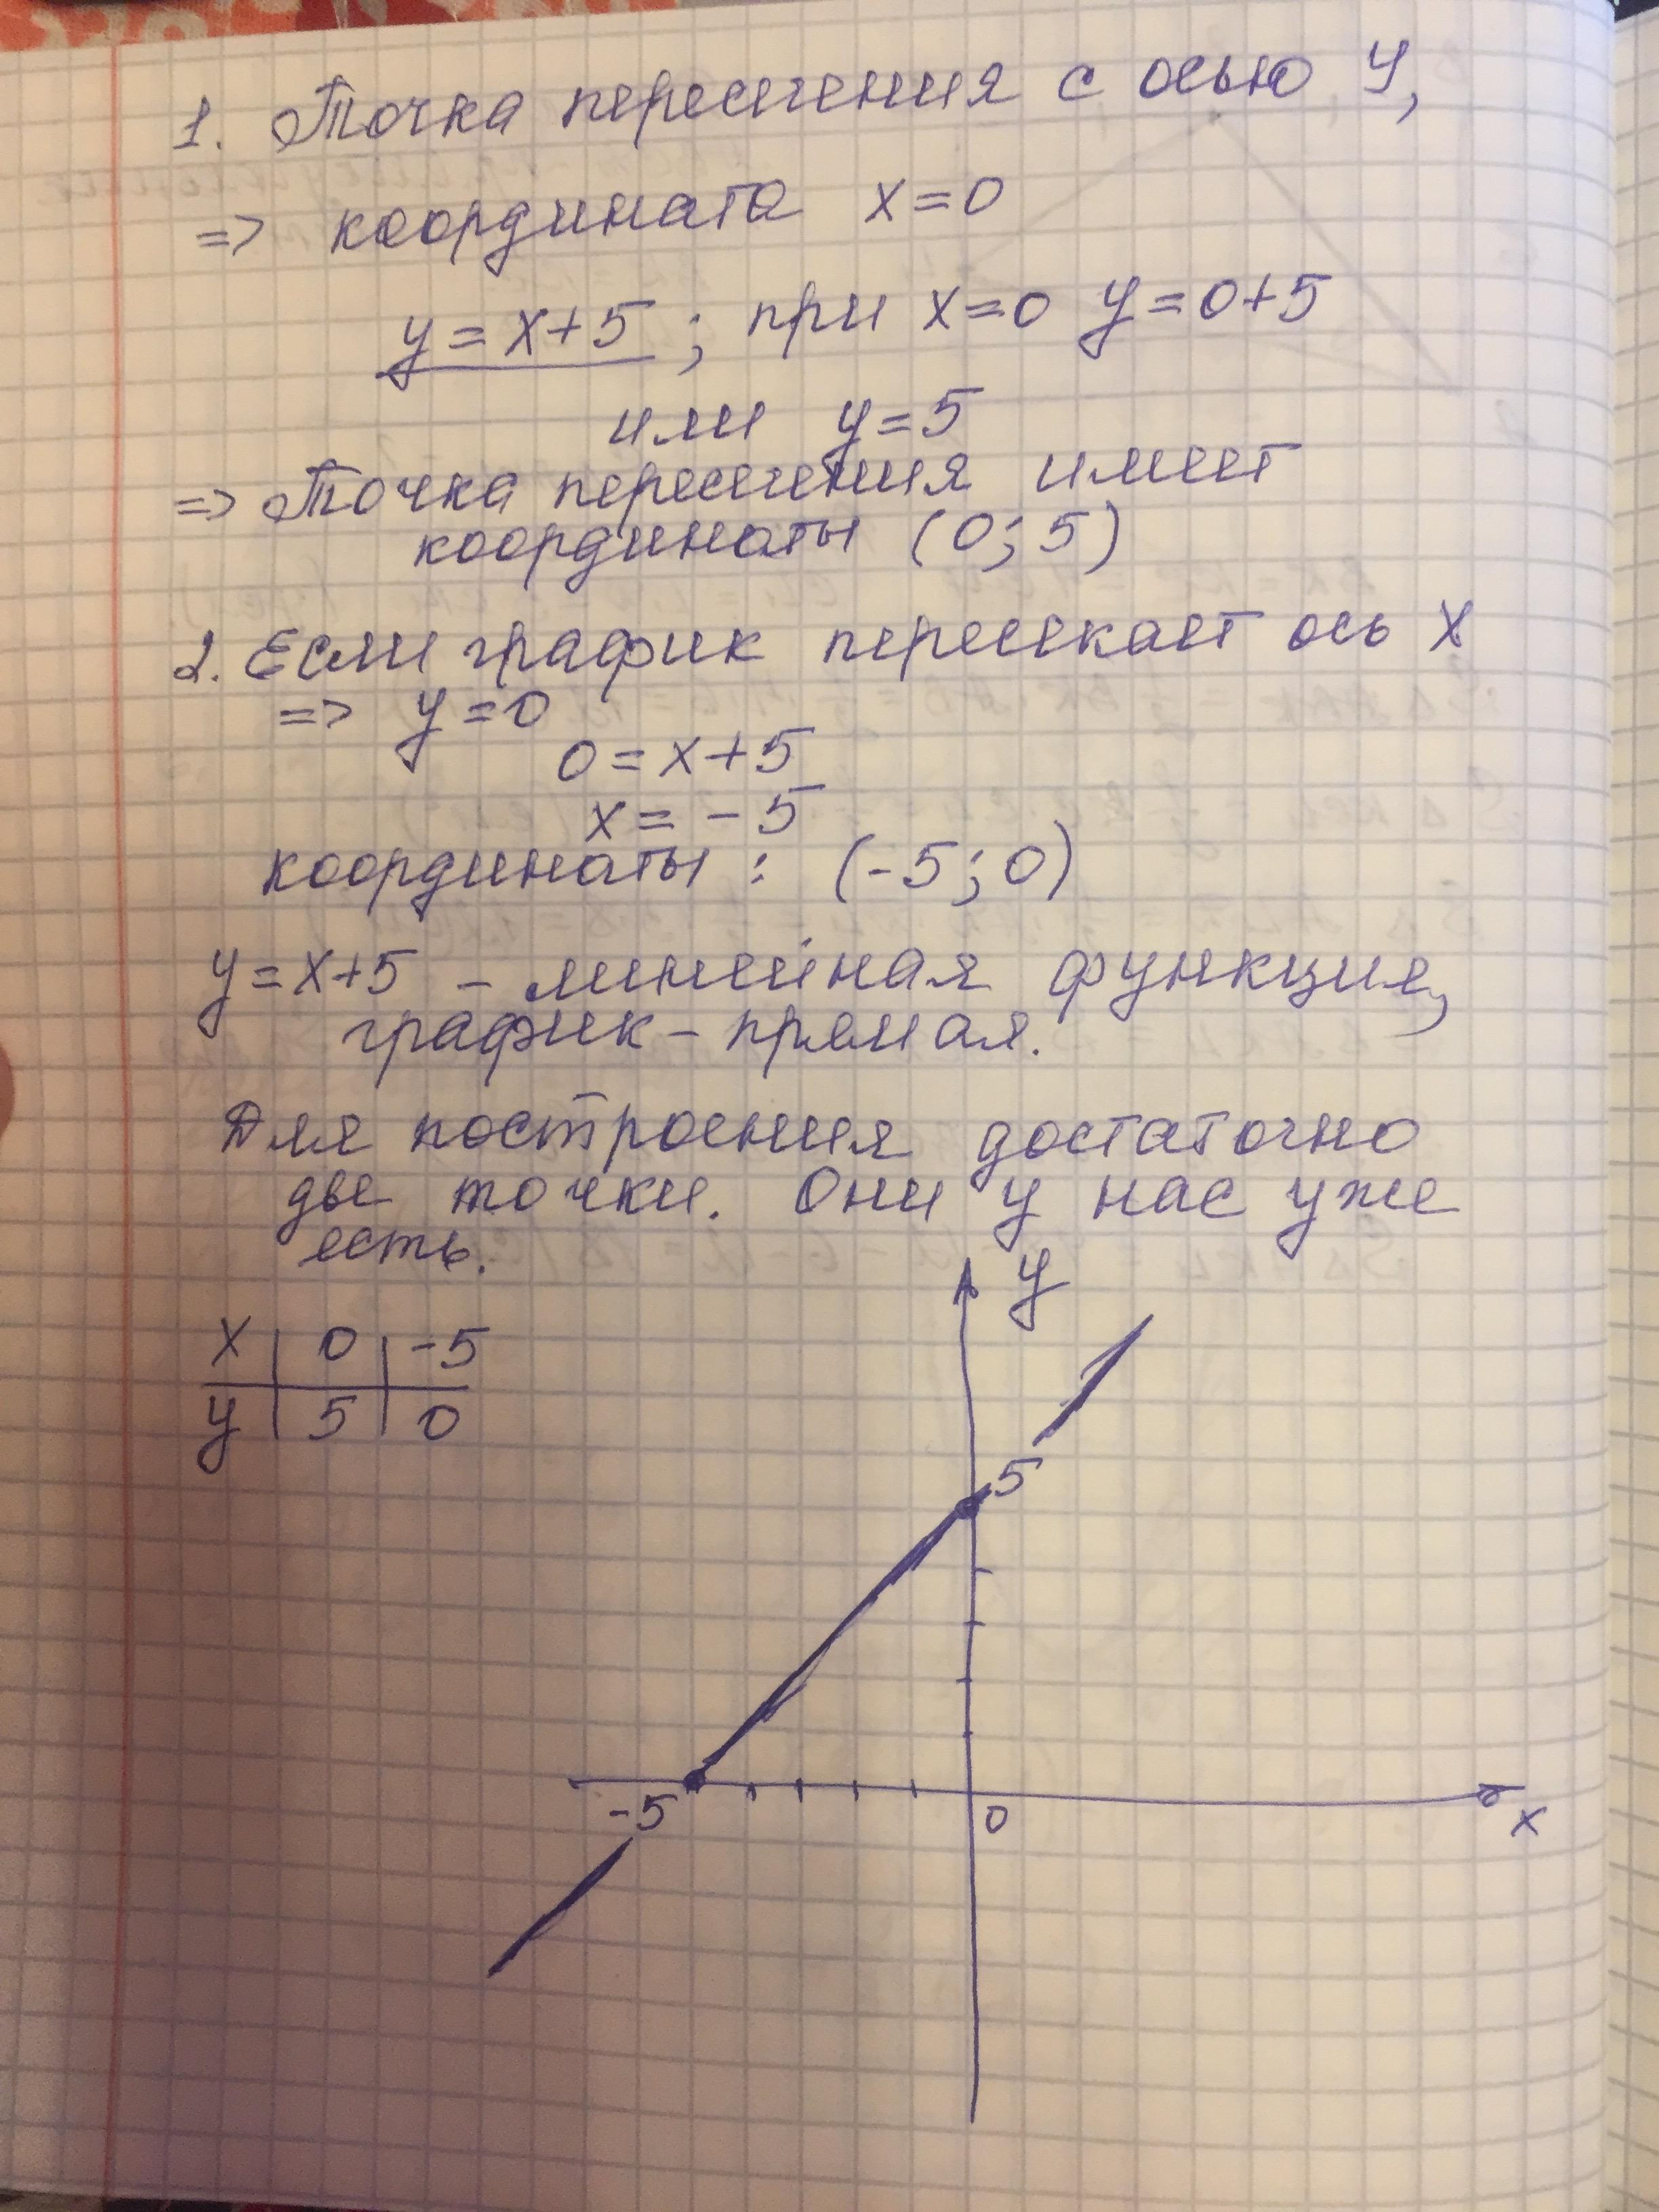 1. Точка пересечения с осью У,
=> координата x=0
y=x+5 ; при x=0 y=0+5
или y=5
=> Точка пересечения имеет
координаты (0; 5)
2. Если график пересекает ось X
=> y=0
0=x+5
x= -5
координаты : (-5; 0)
y=x+5 - линейная функция,
график - прямая.
Для построения достаточно
две точки. Они у нас уже
есть.
x | 0 | -5
y | 5 | 0
y
5
-5
0
x